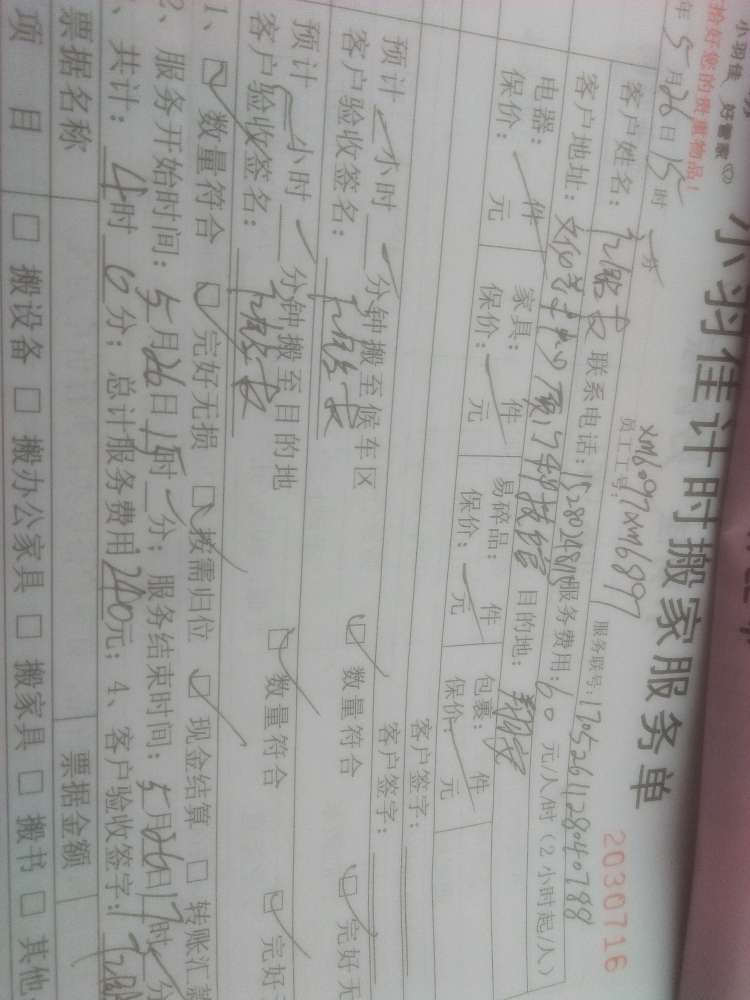 小羽佳 好管家
小羽佳计时搬家服务单
2030716
拾好您的贵重物品！
员工工号： xm6097 xm6897
服务联号：
年5月26日15时
客户姓名： 联系电话： 服务费用：60元/人/时（2小时起/人）
客户地址： 目的地：
电器： 件 家具： 件 易碎品： 件 包裹： 件
保价： 元 保价： 元 保价： 元 保价： 元
客户签字：
预计 小时 分钟搬至候车区 数量符合 完好无
客户验收签名： 客户签字：
预计 小时 分钟搬至目的地 数量符合 完好
客户验收签名：
1、 数量符合 完好无损 按需归位 现金结算 转账汇款
2、服务开始时间：5月26日15时 分；服务结束时间：5月26日17时 分
、共计：4时0分；总计服务费用240元；4、客户验收签字：
票据名称 票据金额
项 目 搬设备 搬办公家具 搬家具 搬书 其他